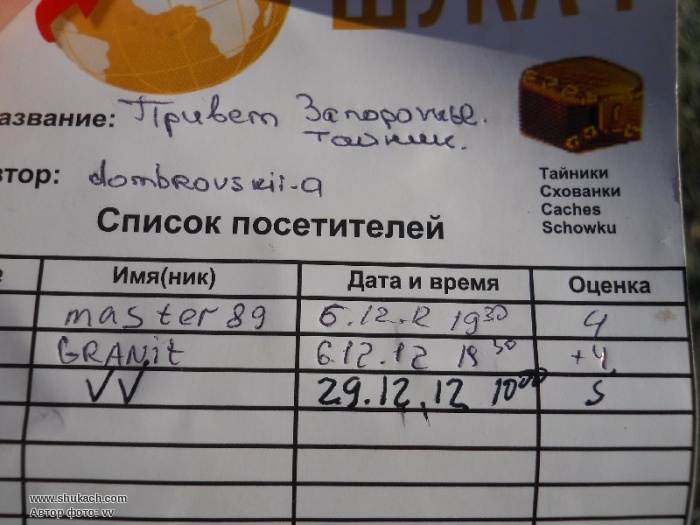 ШУКАЧ
азвание: Привет Запорожье.
тайник.
втор: dombrovskii-a
Тайники
Схованки
Caches
Schowku
Список посетителей
Имя(ник) Дата и время Оценка
master 89 6.12.12 19 30 4
GRANit 6.12.12 19 30 +4
VV 29.12.12 10 00 5
www.shukach.com
Автор фото: vv